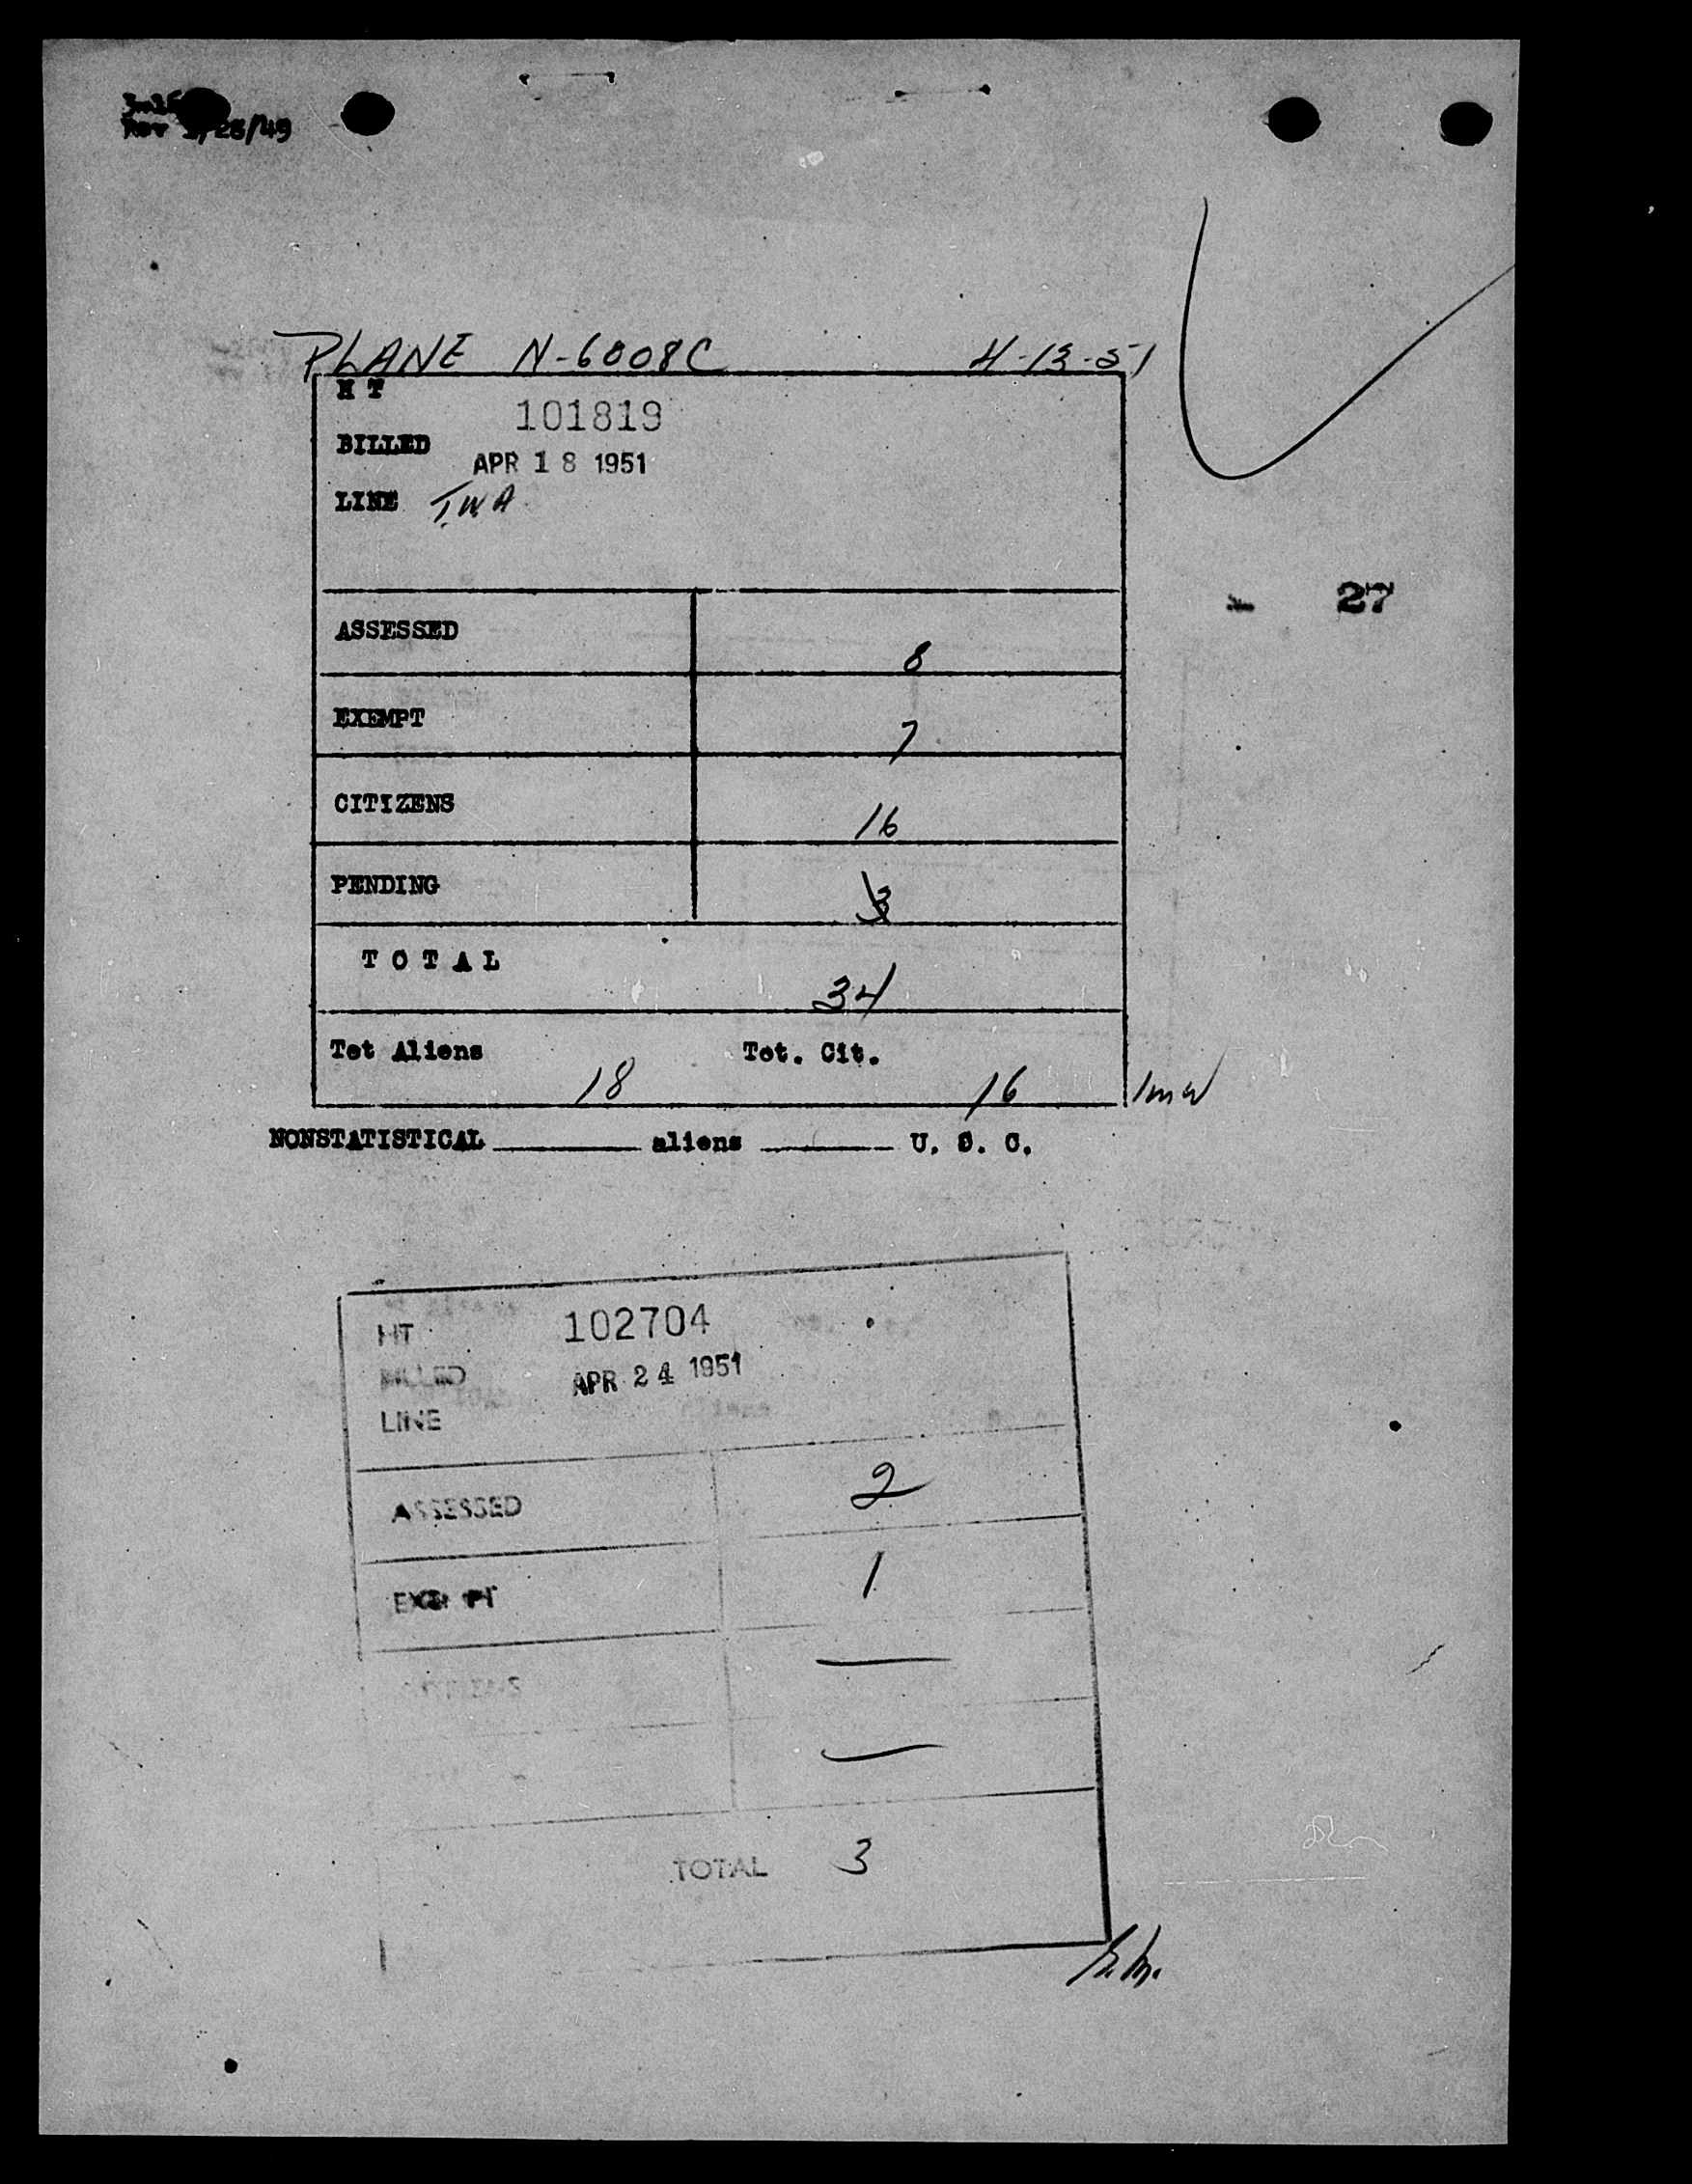 Rev 28/49
PLANE N-6008C 4-13-51
H T 101819
BILLED APR 18 1951
LINE T.W.A.
27
ASSESSED 8
EXEMPT 7
CITIZENS 16
PENDING 3
TOTAL 34
Tot Aliens 18 Tot. Cit. 16
NONSTATISTICAL aliens U. S. C.
HT 102704
BILLED APR 24 1951
LINE
ASSESSED 2
EXEMPT 1
TOTAL 3